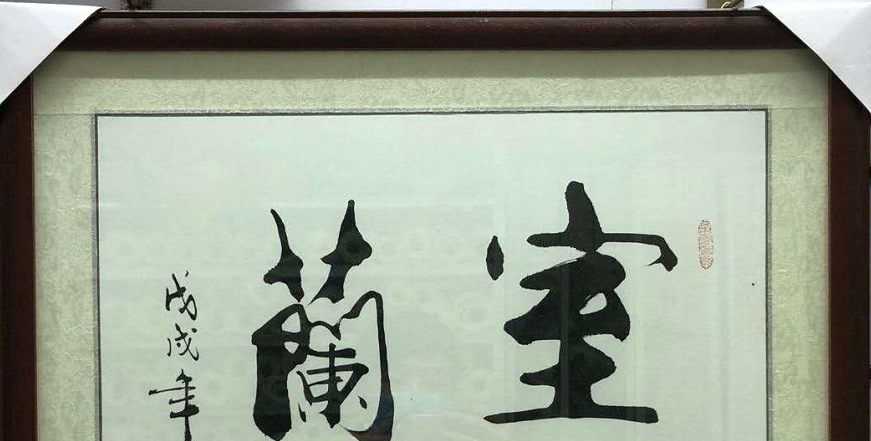 室
蘭
戊戌年